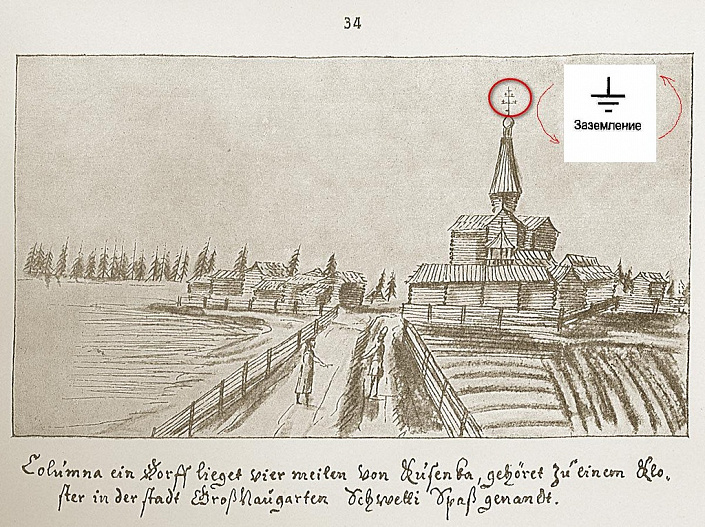 34
Заземление
Columna ein Dorff lieget vier meilen von Rusenba, gehöret zu einem Klo-
ster in der stadt Großnaugarten Schwetti Spaß genandt.